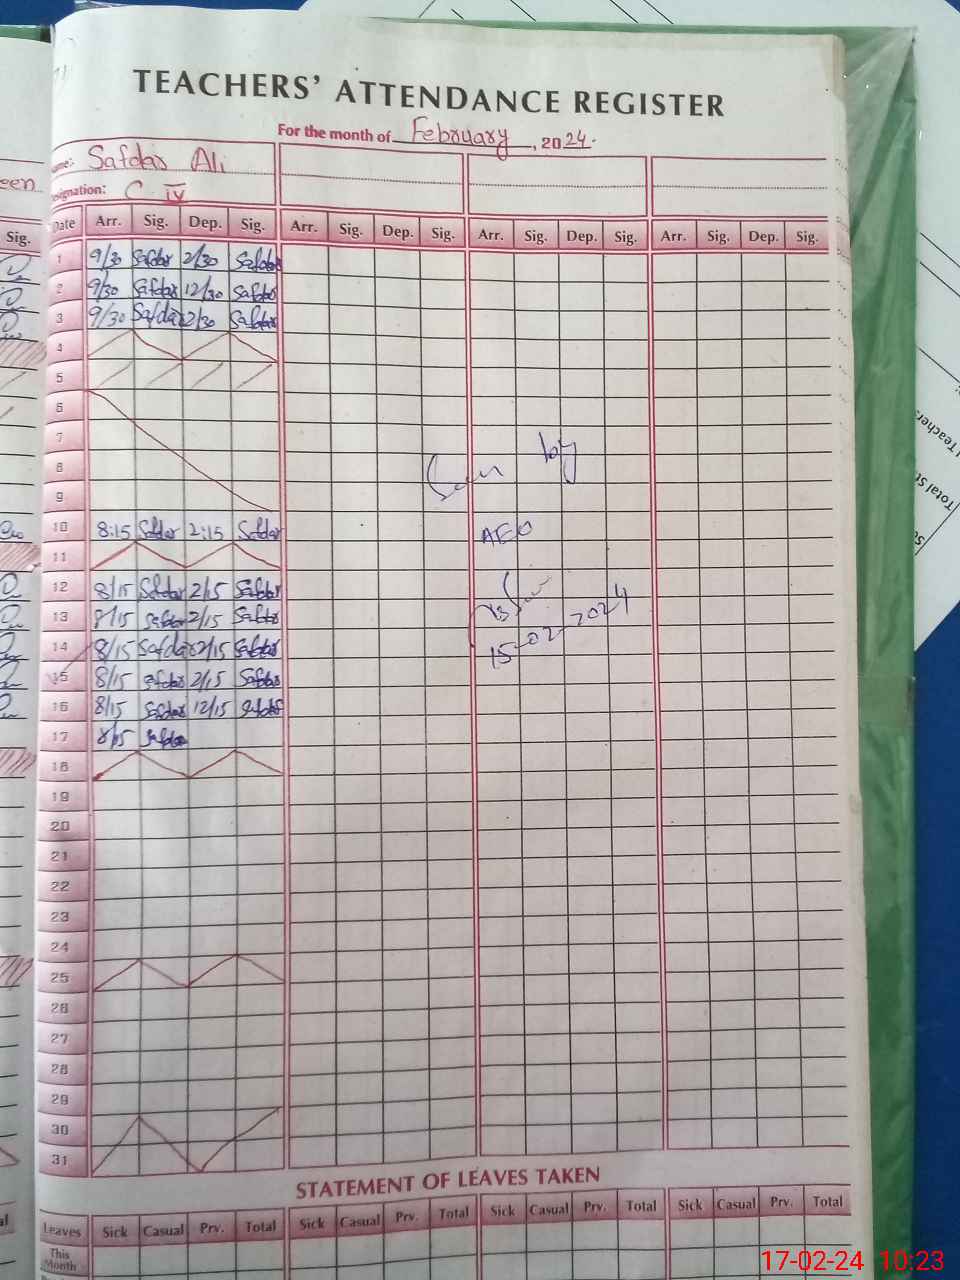 TEACHERS' ATTENDANCE REGISTER
For the month of February, 2024.
Safdar Ali
C IV
Date Arr. Sig. Dep. Sig. Arr. Sig. Dep. Sig. Arr. Sig. Dep. Sig. Arr. Sig. Dep. Sig.
een
Sig.
1 9/30 Safdar 2/30 Safdar
2 9/30 Safdar 12/30 Safdar
3 9/30 Safdar 2/30 Safdar
4
5
6
7
8
9
10 8:15 Safdar 2:15 Safdar
11
12 8/15 Safdar 2/15 Safdar
13 8/15 Safdar 2/15 Safdar
14 8/15 Safdar 2/15 Safdar
15 8/15 Safdar 2/15 Safdar
16 8/15 Safdar 12/15 Safdar
17 8/15 Safdar
18
19
20
21
22
23
24
25
26
27
28
29
30
31
Seen by
AEO
15-02-2024
STATEMENT OF LEAVES TAKEN
Leaves Sick Casual Prv. Total Sick Casual Prv. Total Sick Casual Prv. Total Sick Casual Prv. Total
This Month
Teacher
Total St
17-02-24 10:23